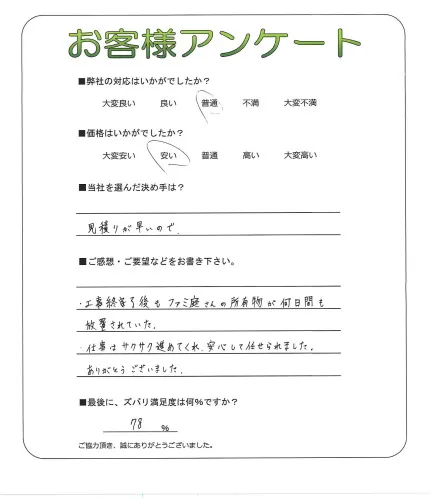 お客様アンケート
■弊社の対応はいかがでしたか？
大変良い 良い 普通 不満 大変不満
■価格はいかがでしたか？
大変安い 安い 普通 高い 大変高い
■当社を選んだ決め手は？
見積りが早いので、
■ご感想・ご要望などをお書き下さい。
・工事終了後も ファミ庭さんの所有物が何日間も
放置されていた。
・仕事はサクサク進めてくれ、安心して任せられました。
ありがとうございました。
■最後に、ズバリ満足度は何％ですか？
78 ％
ご協力頂き、誠にありがとうございました。